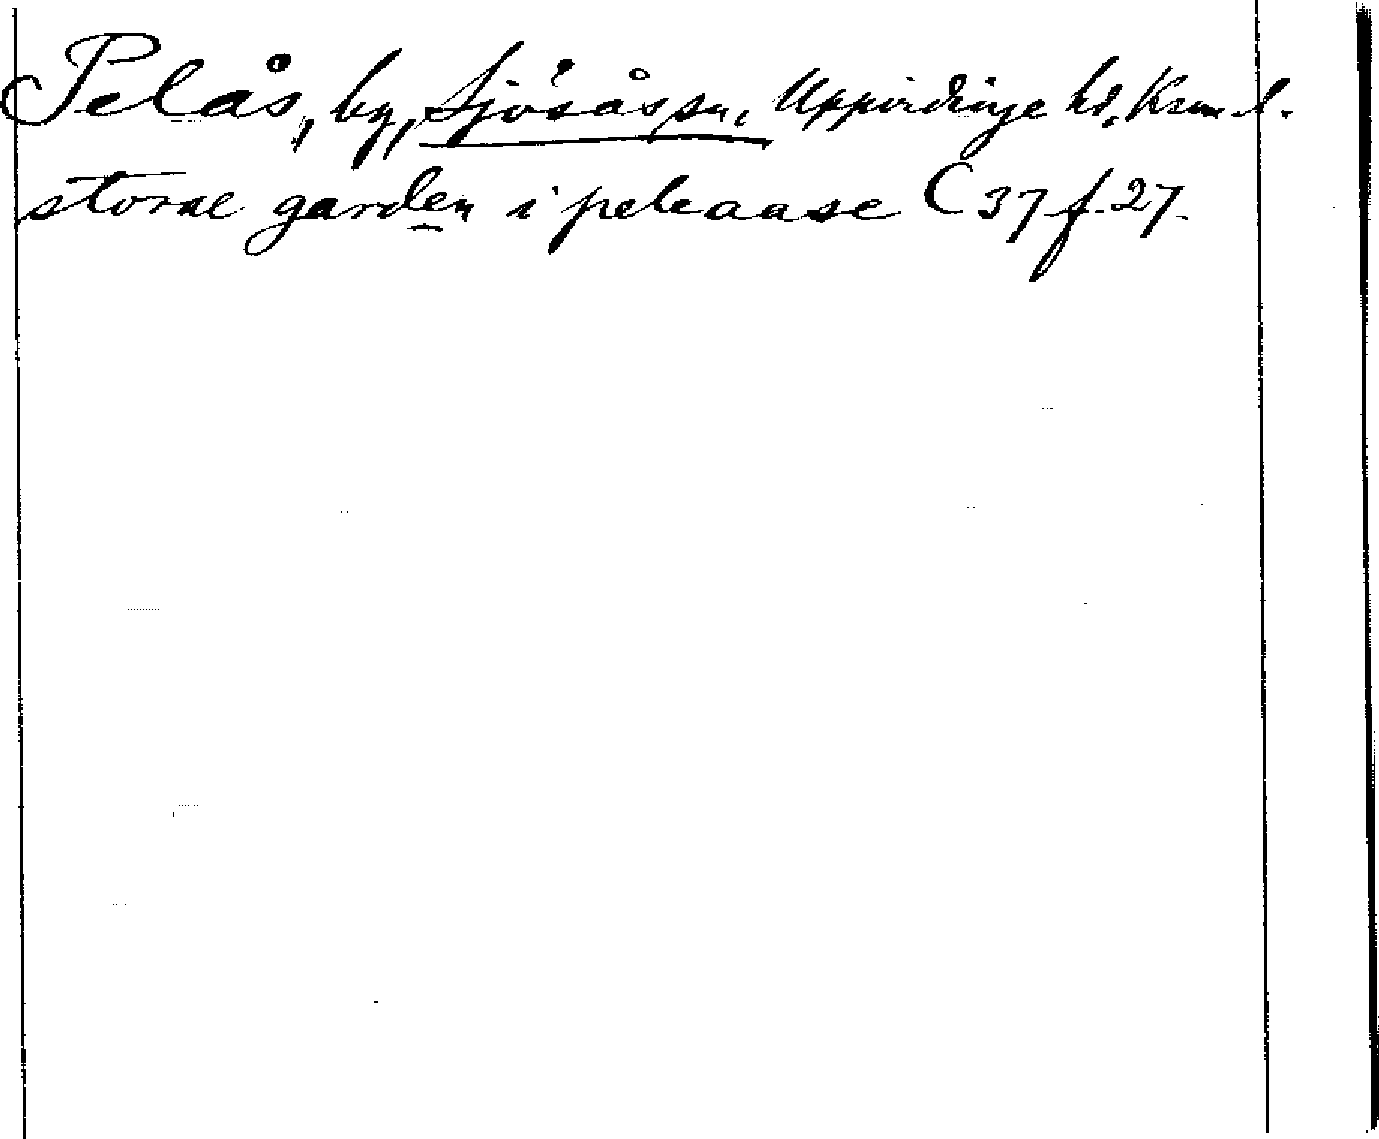 Pelås, by, Sjösås sn, Uppvidinge hd, Kron. l.
storæ garden i pekaase C 37 f. 27.